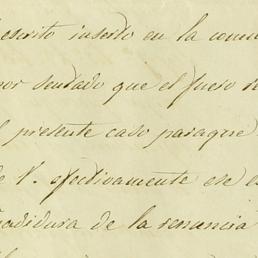 escrito inserto en la comu
por sentado que el fuero de
l presente caso paraque
de V. efectivamente en e
de la renuncia